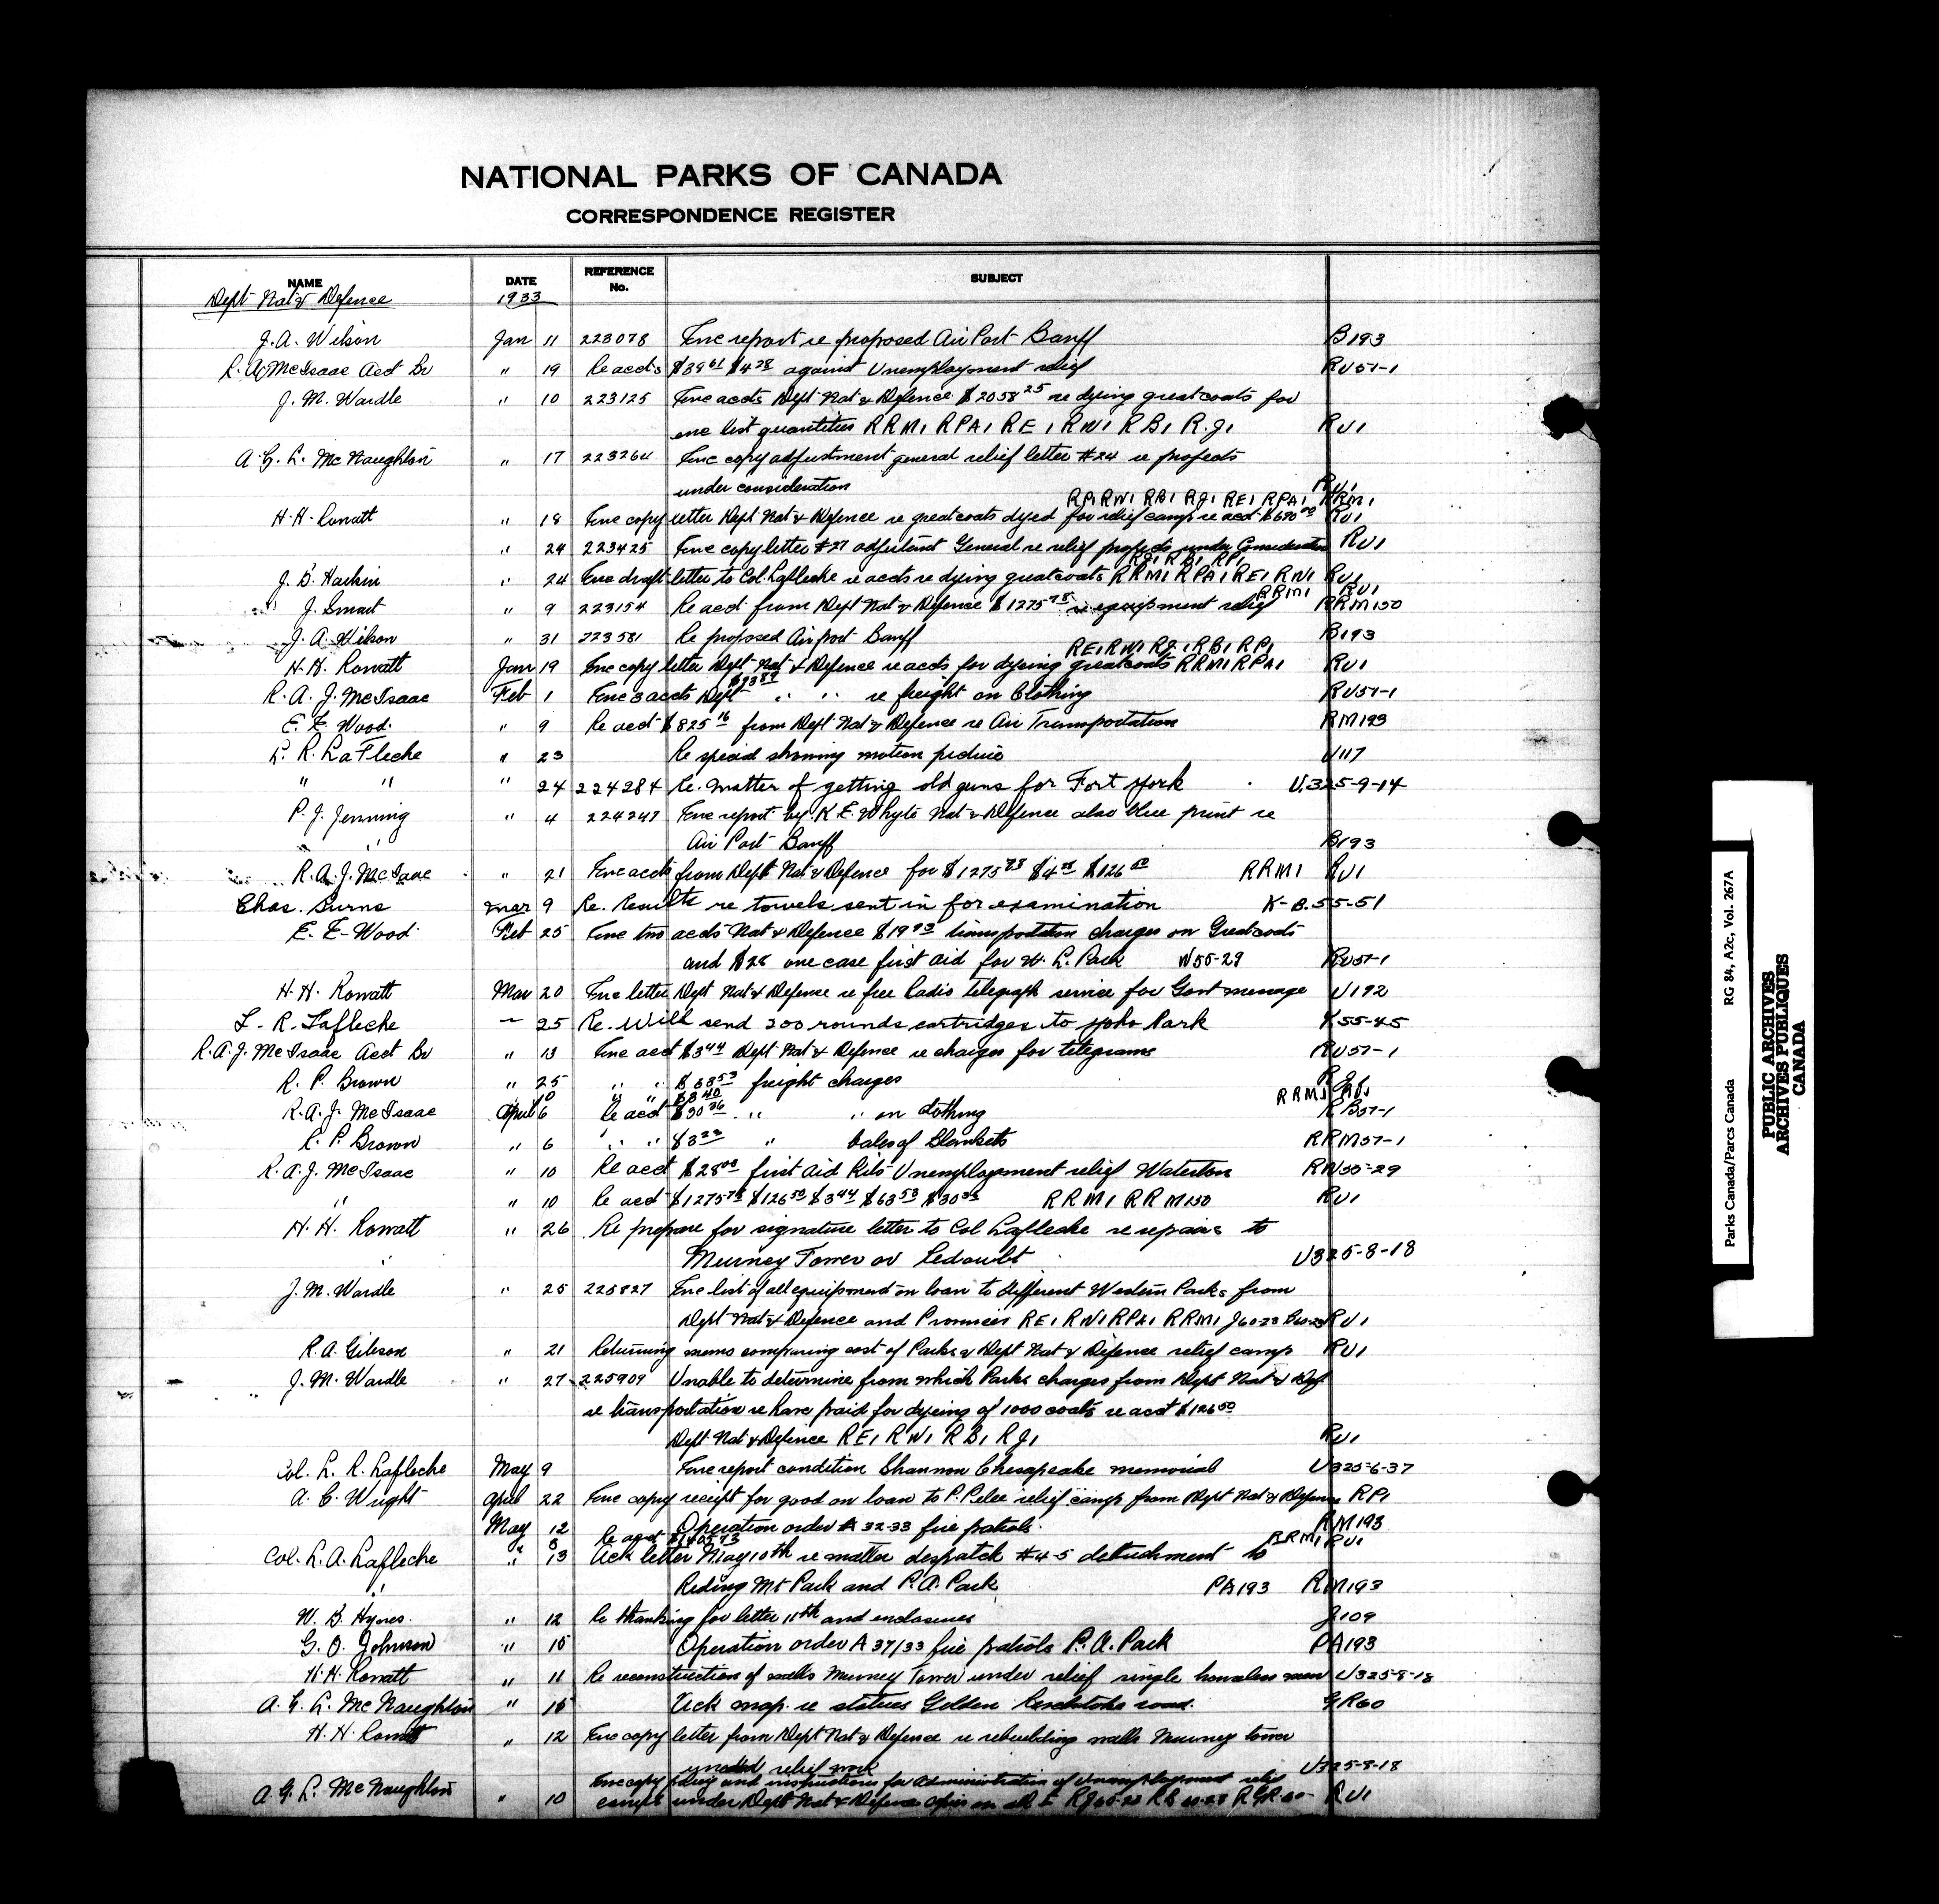 NATIONAL PARKS OF CANADA
CORRESPONDENCE REGISTER
NAME DATE REFERENCE No. SUBJECT
Dept Nat'l Defence 1933
J.A. Wilson Jan 11 223078 Enc report re proposed Air Port Banff B193
R.A.J. McIsaac Acct Br " 19 Re accts $39 61 $4 28 against Unemployment relief RU57-1
J.M. Wardle " 10 223125 Enc accts Dept Nat'l Defence $2058 25 re dyeing greatcoats for
enc list quantities RRM1 RPA1 RE1 RW1 RB1 R.J1 RU1
A.G.L. McNaughton " 17 223264 Enc copy adjustment general relief letter #24 re projects
under consideration RU1
RP1 RW1 RB1 RJ1 RE1 RPA1 RRM1
H.H. Rowatt " 18 Enc copy letter Dept Nat'l Defence re greatcoats dyed for relief camp re acct $690 00 RU1
" 24 223425 Enc copy letter #27 adjutant General re relief projects under Consideration RU1
RJ1 RB1 RP1
J.B. Harkin " 24 Enc draft letter to Col. Lafleche re accts re dyeing greatcoats RRM1 RPA1 RE1 RW1 RU1
RRM1 RU1
J. Smart " 9 223154 Re acct from Dept Nat'l Defence $1275 78 re equipment relief RRM150
J.A. Wilson " 31 223581 Re proposed Airport Banff B193
RE1 RW1 RJ1 RB1 RP1
H.H. Rowatt Jan 19 Enc copy letter Dept Nat'l Defence re accts for dyeing greatcoats RRM1 RPA1 RU1
R.A.J. McIsaac Feb 1 Enc 3 accts Dept " " re freight on Clothing RU57-1
E.E. Wood " 9 Re acct $825 16 from Dept Nat'l Defence re Air Transportation RM193
L.R. LaFleche " 23 Re special showing motion picture U117
" " " 24 224284 Re. matter of getting old guns for Fort York U.325-9-14
P.J. Jenning " 4 224247 Enc report by K.E. Whyte Nat'l Defence also blue print re
" Air Port Banff B193
R.A.J. McIsaac " 21 Enc accts from Dept Nat'l Defence for $1275 78 $4 28 $126 50 RRM1 RU1
Chas. Burns Mar 9 Re. Results re towels sent in for examination K-B.55-51
E.E. Wood Feb 25 Enc two accts Nat'l Defence $19 93 transportation charges on Greatcoats
and $28 one case first aid for W.L. Park W55-29 RU57-1
H.H. Rowatt Mar 20 Enc letter Dept Nat'l Defence re free Radio telegraph service for Govt message U192
L.R. Lafleche " 25 Re. Will send 200 rounds cartridges to Yoho Park Y55-45
R.A.J. McIsaac Acct Br " 13 Enc acct $3 44 Dept Nat'l Defence re charges for telegrams RU57-1
R.P. Brown " 25 " " $68 53 freight charges
" 10 " " $3 40 RRM1 RU1
R.A.J. McIsaac April 6 Re acct $30 36 " " on clothing RB57-1
R.P. Brown " 6 " " $3 22 " bales of Blankets RRM57-1
R.A.J. McIsaac " 10 Re acct $28 00 first aid kits Unemployment relief Waterton RW55-29
" " 10 Re acct $1275 78 $126 50 $3 44 $63 53 $30 36 RRM1 RRM150 RU1
H.H. Rowatt " 26 Re prepare for signature letter to Col Lafleche re repairs to
" Murney Tower or Redoubt U325-8-18
J.M. Wardle " 25 225827 Enc list of all equipment on loan to different Western Parks from
Dept Nat'l Defence and Provinces RE1 RW1 RPA1 RRM1 J60-23 RU1
R.A. Gibson " 21 Returning memo comparing cost of Parks & Dept Nat'l Defence relief camp RU1
J.M. Wardle " 27 225909 Unable to determine from which Parks charges from Dept Nat'l Def
re transportation re have paid for dyeing of 1000 coats re acct $126 50
Dept Nat'l Defence RE1 RW1 RB1 RJ1 RU1
Col. L.R. Lafleche May 9 Enc report condition Shannon Chesapeake memorial U325-6-37
A.C. Wright April 22 Enc copy receipt for good on loan to P. Pelee relief camp from Dept Nat'l Defence RP1
May 12 Operation order A 32-33 fire patrols RM193
" 8 Re acct RRM1 RU1
Col. L.A. Lafleche " 13 Ack letter May 10th re matter despatch #4-5 detachment to
" Riding Mt Park and P.A. Park PA193 RM193
W.B. Hynes " 12 Re thanking for letter 11th and enclosures J109
G.O. Johnson " 15 Operation order A 37/33 fire patrols P.A. Park PA193
H.H. Rowatt " 11 Re reconstruction of walls Murney Tower under relief single homeless men U325-8-18
A.G.L. McNaughton " 15 Ack map re statues Golden Revelstoke road. GR60
H.H. Rowatt " 12 Enc copy letter from Dept Nat'l Defence re rebuilding walls Murney tower
under relief work U325-8-18
Enc copy policy and instructions for administration of Unemployment relief
A.G.L. McNaughton " 10 camps under Dept Nat'l Defence copies on all RU1
Parks Canada/Parcs Canada RG 84, A2c, Vol. 267A
PUBLIC ARCHIVES
ARCHIVES PUBLIQUES
CANADA